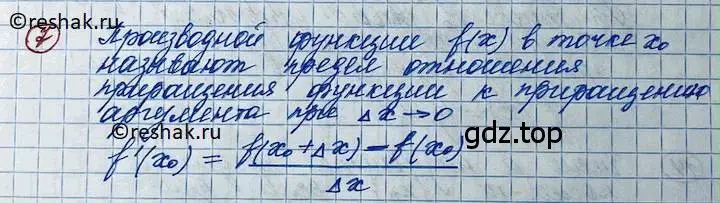 ©reshak.ru
7 Производной функции f(x) в точке x₀
называют предел отношения
приращения функции к приращению
аргумента при Δx→0
©reshak.ru
f'(x₀) = f(x₀+Δx) − f(x₀)
gdz.top
Δx